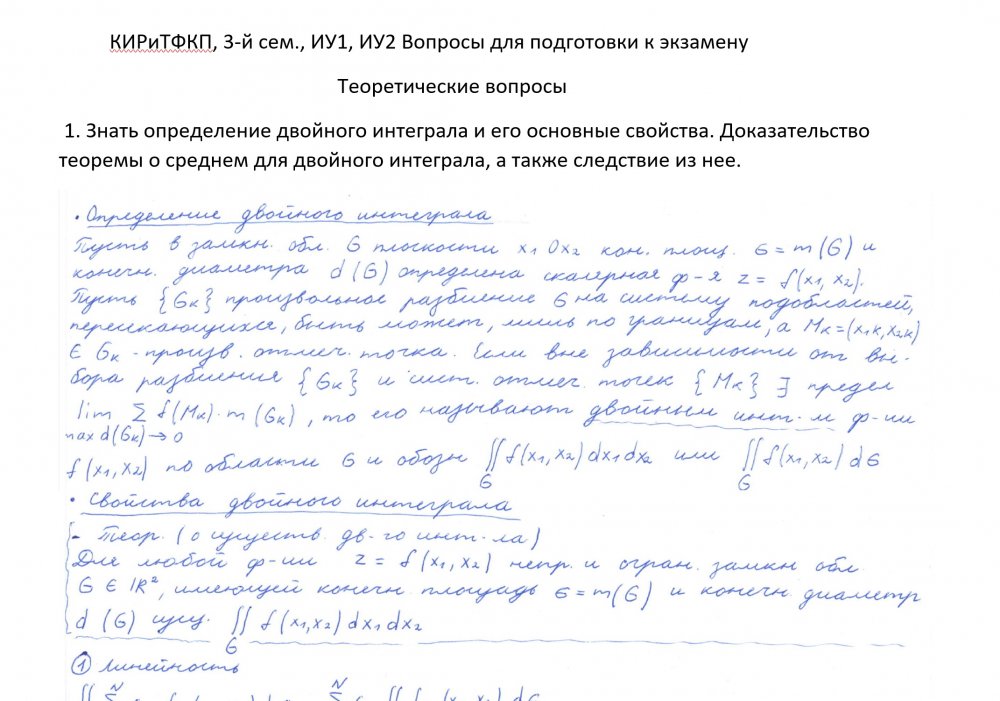 КИРиТФКП, 3-й сем., ИУ1, ИУ2 Вопросы для подготовки к экзамену
Теоретические вопросы
1. Знать определение двойного интеграла и его основные свойства. Доказательство
теоремы о среднем для двойного интеграла, а также следствие из нее.
• Определение двойного интеграла
Пусть в замкн. обл. G плоскости x₁Ox₂ кон. площ. σ = m(G) и
конечн. диаметра d(G) определена скалярное ф-я z = f(x₁, x₂).
Пусть {Gₖ} произвольное разбиение G на систему подобластей,
пересекающихся, быть может, лишь по границам, а Mₖ=(x₁ₖ, x₂ₖ)
∈ Gₖ - произв. отмеч. точка. Если вне зависимости от вы-
бора разбиения {Gₖ} и сист. отмеч. точек {Mₖ} ∃ предел
lim Σ f(Mₖ)·m(Gₖ), то его называют двойным инт-м ф-ии
max d(Gₖ)→0
f(x₁, x₂) по области G и обозн ∬ f(x₁, x₂) dx₁dx₂ или ∬ f(x₁, x₂) dσ
G G
• Свойства двойного интеграла
- Теор. (о существ. дв-го инт-ла)
Для любой ф-ии z = f(x₁, x₂) непр. и огран. замкн обл
G ∈ ℝ², имеющей конечн. площадь σ = m(G) и конечн. диаметр
d(G) сущ. ∬ f(x₁, x₂) dx₁dx₂
G
① Линейность